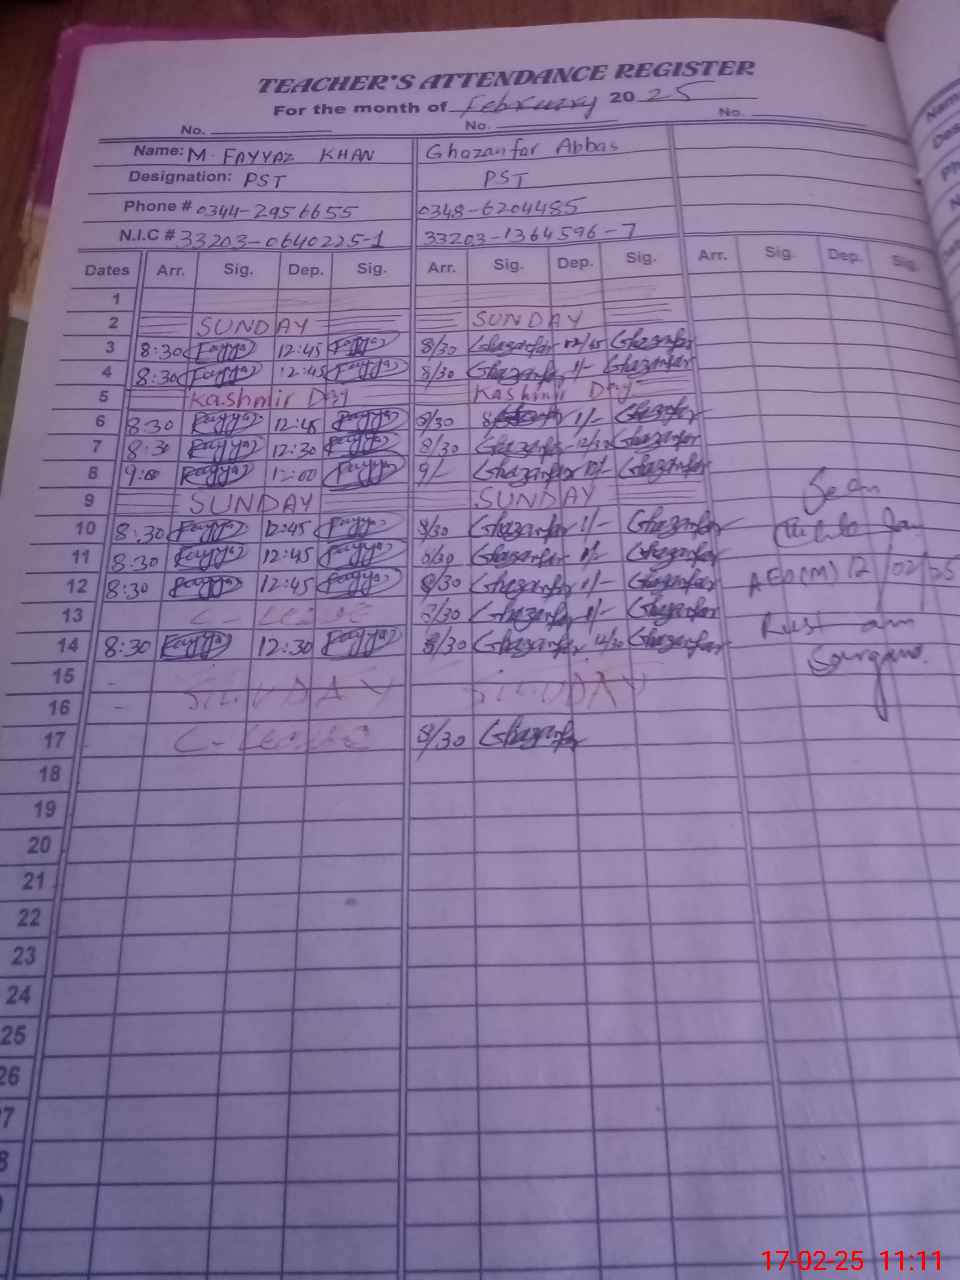 TEACHER'S ATTENDANCE REGISTER
For the month of February 20 25
No. No. No.
Name: M. FAYYAZ KHAN Ghazanfar Abbas
Designation: PST PST
Phone # 0344-2956655 0348-6204485
N.I.C # 33203-0640225-1 33203-1364596-7
Dates Arr. Sig. Dep. Sig. Arr. Sig. Dep. Sig. Arr. Sig. Dep. Sig.
1
2 SUNDAY SUNDAY
3 8:30 Fayyaz 12:45 Fayyaz 8/30 Ghazanfar 12/45 Ghazanfar
4 8:30 Fayyaz 12:45 Fayyaz 8/30 Ghazanfar 1/- Ghazanfar
5 Kashmir Day Kashmir Day
6 8:30 Fayyaz 12:45 Fayyaz 8/30 1/- Ghazanfar
7 8:30 Fayyaz 12:30 Fayyaz 8/30 Ghazanfar 12/30 Ghazanfar
8 9:00 Fayyaz 12:00 Fayyaz 9/- Ghazanfar Ghazanfar
9 SUNDAY SUNDAY
10 8:30 Fayyaz 12:45 Fayyaz 8/30 Ghazanfar 1/- Ghazanfar
11 8:30 Fayyaz 12:45 Fayyaz 8/30 Ghazanfar 1/- Ghazanfar
12 8:30 Fayyaz 12:45 Fayyaz 8/30 Ghazanfar 1/- Ghazanfar AEO(M) 12/02/25
13 C-Leave 8/30 Ghazanfar 1/- Ghazanfar
14 8:30 Fayyaz 12:30 Fayyaz 8/30 Ghazanfar Ghazanfar
15
16 SUNDAY SUNDAY
17 C-Leave 8/30 Ghazanfar
18
19
20
21
22
23
24
25
26
7
8
17-02-25 11:11